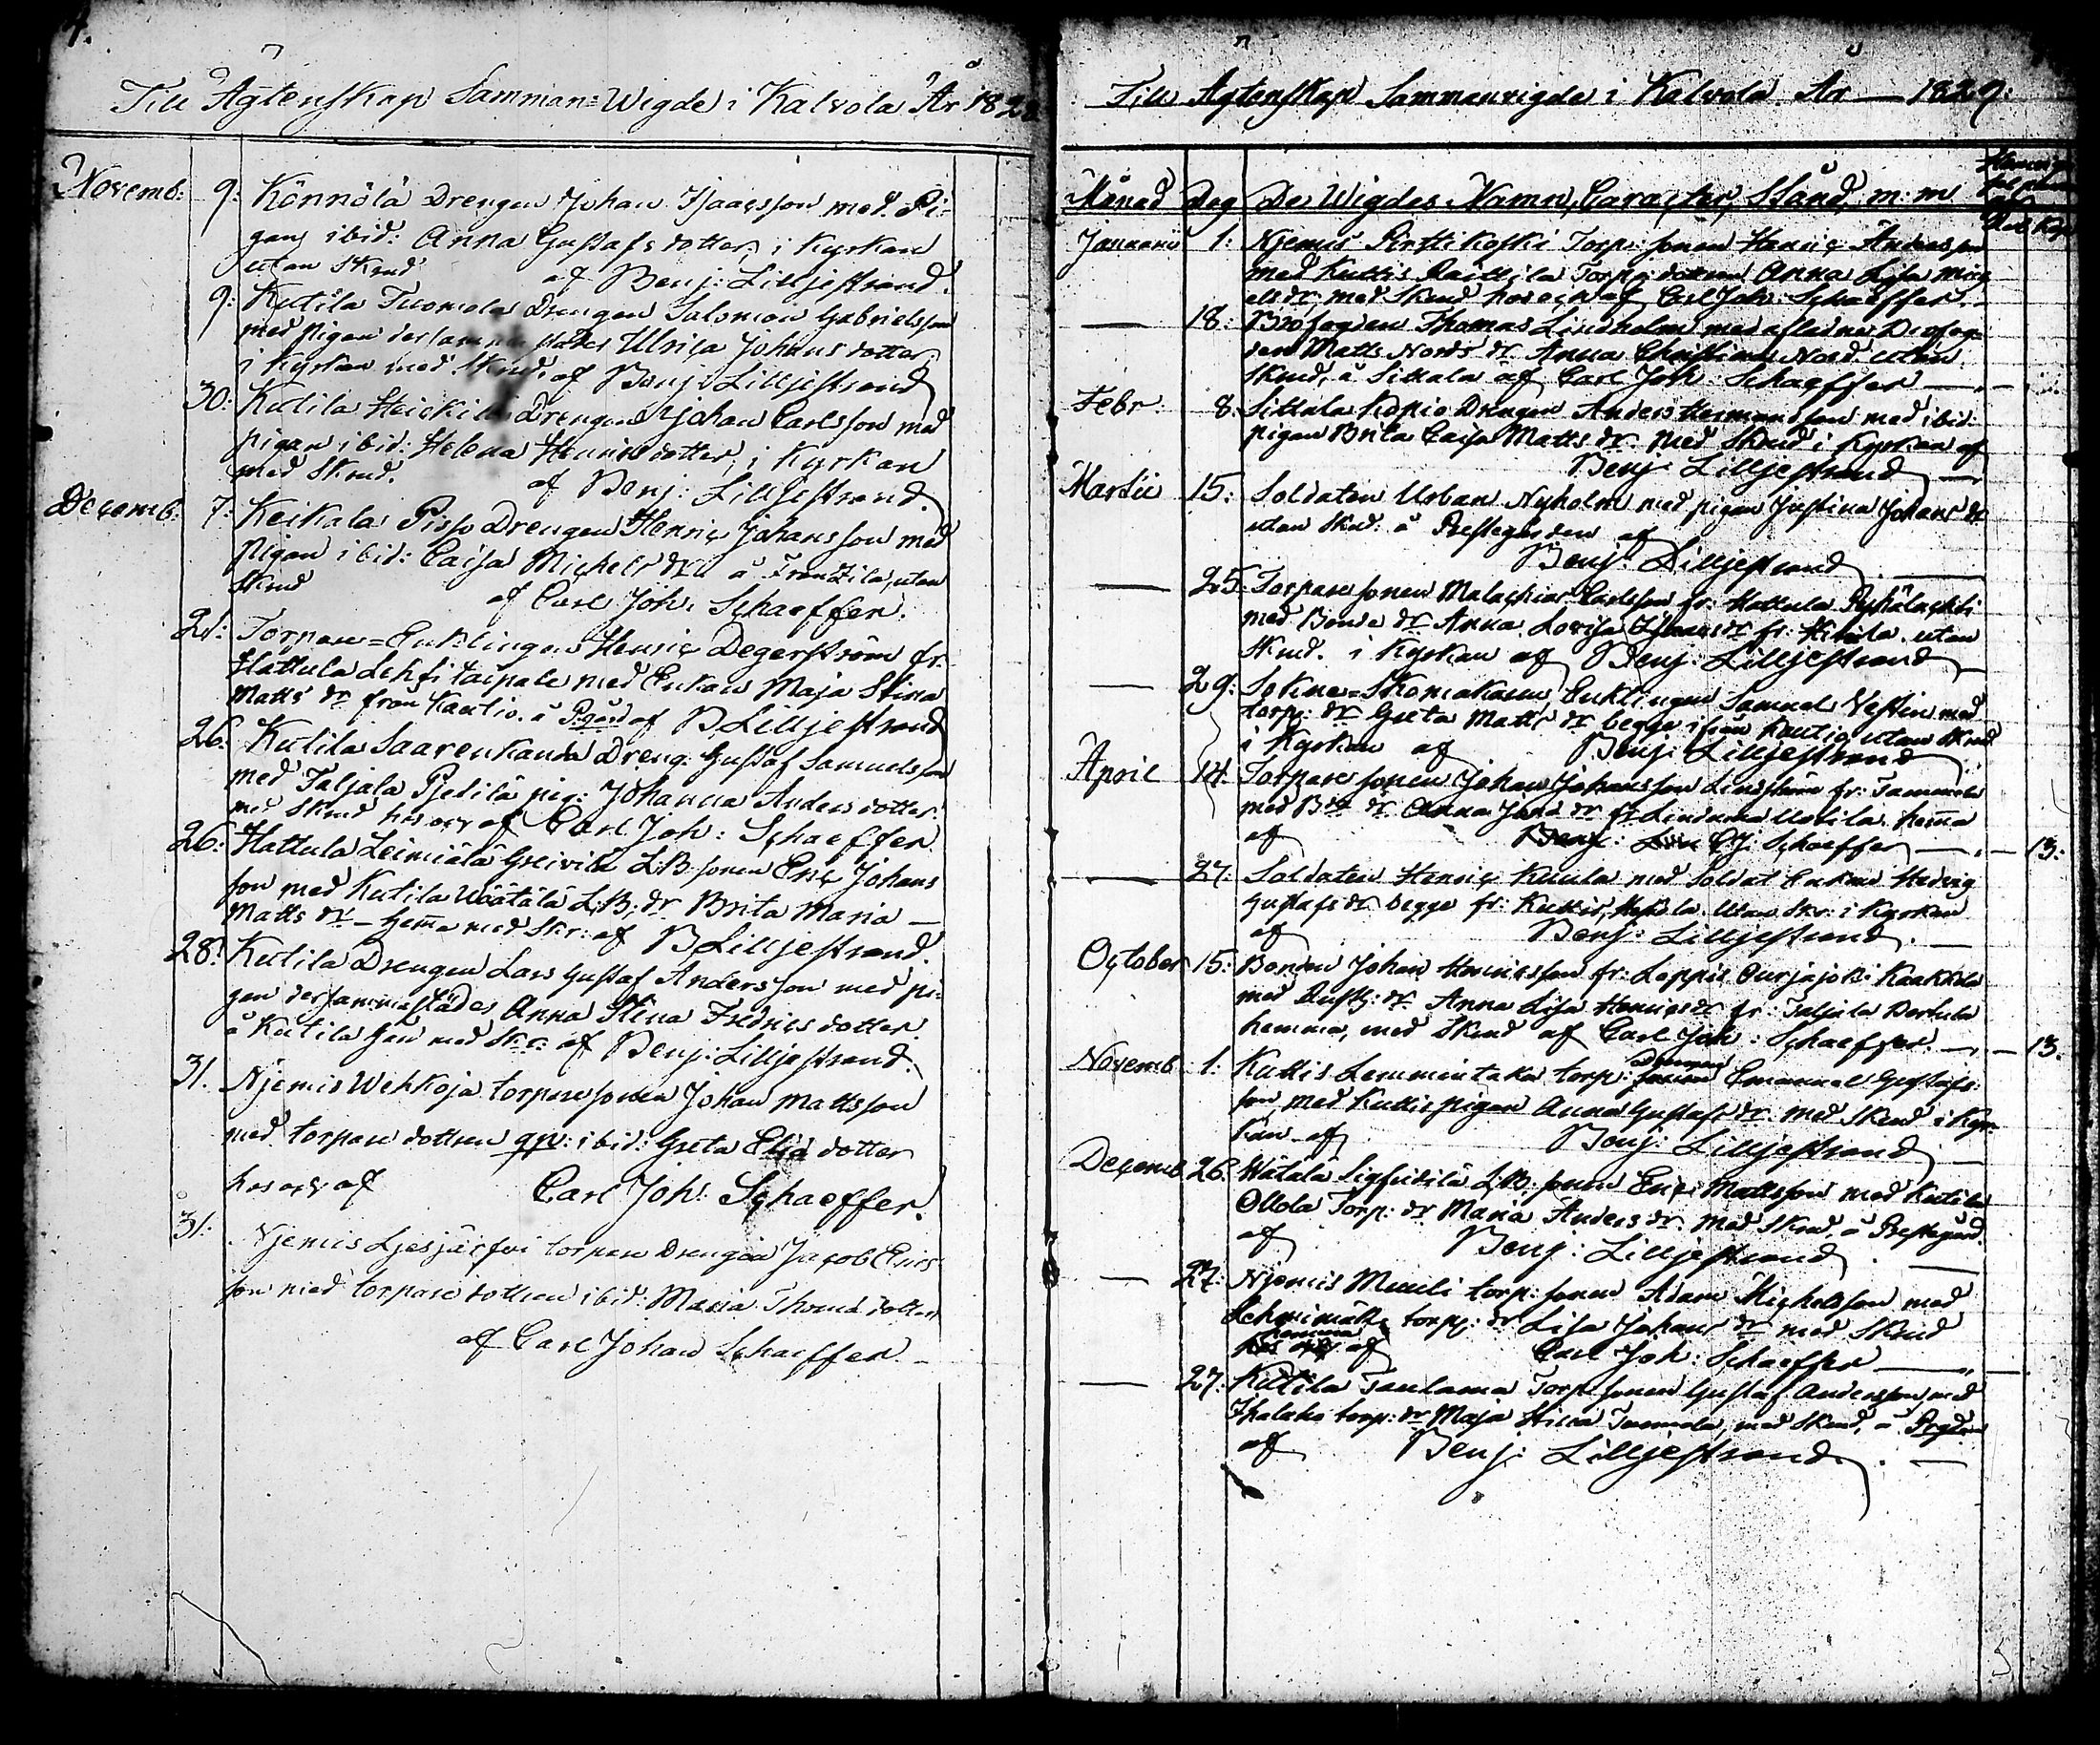 Till Ägtenskap Samman=Wigde i Kalvola År 182
Novemb: 9: Könnölä Drengen Johan Isaacsson med Pi-
gan ibid: Anna Gustafs dotter, i Kyrkan
utan Skrud af Benj: Lilljestrand.
9: Kutila Tuomola Drengen Salomon Gabrielsson
med pigan dersammastädes Ulrica Johans dotter
i Kyrkan med Skrud. af Benj: Lilljestrand
30: Kutila Heickilä Drengen Johan Carlsson med
pigan ibid: Helena Henrics dotter, i Kyrkan
med Skrud. af Benj: Lilljestrand.
Decemb: 7: Keikala Pispo Drengen Henric Johansson med
pigan ibid: Caisa Michels dr å Frantzila, utan
Skrud af Carl Joh: Schaeffer.
21: Torpare=Enklingen Henric Degerström fr.
Hattula Lehsitaipale med Enkan Maja Stina
Matts dr från Kautio. å Pgård af B Lilljestrand
26: Kutila Saarenkanda Dreng Gustaf Samuelsson
med Taljala Pjetilä pig: Johanna Anders dotter
med Skrud hos oss af Carl Joh: Schaeffer
26: Hattula Leimiälä Greivilä LB sonen Eric Johans
son med Kutila Wäätälä L:B: dr Brita Maria —
Matts dr — hema med Skr: af B Lilljestrand.
28: Kutila Drengen Lars Gustaf Andersson med pi-
gan dersammastädes Anna Stina Fredrics dotter
å Kutila Går med Skr: af Benj: Lilljestrand.
31. Njemis Wehkoja torparesonen Johan Mattsson
med torpare dottren qv: ibid: Greta Eliæ dotter
hos oss af Carl Joh: Schaeffer.
31: Njemis Ljesjärfvi torpare Drengen Jacob Erics
son med torpare dottren ibid: Maria Thomæ dotter
af Carl Johan Schaeffer. —
Till Ägtenskap Sammanvigde i Kalvola År — 1829:
Månad Dag De Wigdes Namn, Caracter, Stånd, m: m
Januarii 1: Njemis Pirttikoski Torp: sonen Henric Andersson
med Kuttis Räittila Torpe dottren Anna Lisa Mich
els dr, med Skrud hos oss af Carl Joh: Schaeffer. —
— 18: Brofogden Thomas Lindholm med aflidne Brofog-
den Matts Nords dr Anna Christina Nord utan
Skrud, å Sittala af Carl Joh: Schaeffer —
Febr: 8. Sittala Kopio Drengen Anders Hermansson med ibid:
pigan Brita Caisa Matts dr med Skrud i Kyrkan af
Benj: Lilljestrand —
Martii 15: Soldaten Urban Nyholm med pigan Justina Johans dr
utan Skrud: å Prestegården af
Benj: Lilljestrand
— 25: Torpare sonen Malachias Carlsson fr: Hattula
med Bonde dr Anna Lovisa dr fr: utan
Skrud. i Kyrkan af Benj: Lilljestrand
— 29: Sokne=Skomakaren Enklingen Samuel Vestin med
torp: dr Greta Matts dr begge ifrån Kautio utan Skrud
i Kyrkan af Benj: Lilljestrand
April 14. Torpare sonen Johan Johansson Lindström fr: Tammela
med dr Anna dr fr Uotila hema
af Benj: CJ: Schaeffer — — 13:
— 27: Soldaten Henric Kuula med Soldat Enkan Hedvig
Gustafs dr begge fr: Kuttis, utan Skr: i Kyrkan
af Benj: Lilljestrand. —
October 15: Bonden Johan Henricsson fr: Loppis Ourjajoki Kaakkola
med Rusth: dr Anna Lisa Henrics dr fr: Taljala Perttula
hemma, med Skrud af Carl Joh: Schaeffer. — — 13.
Novemb 1: Kuttis Lemmintaka torp: Drengen Emanuel Gustafs-
son, med Kuttis pigan Anna Gustafs dr med Skrud i Kyr-
kan af Benj: Lilljestrand —
Decemb. 26. Wätälä Sigfridilä L:B: sonen Eric Mattsson med Kutila
Ollola Torp: dr Maria Anders dr med Skrud, å Prestegård.
af Benj: Lilljestrand.
— 27: Njemis Muuli torp: sonen Adam Michelsson med
torp: dr Lisa Johans dr med Skrud
hemma af Carl Joh: Schaeffer —
— 27: Kutila Taulama Torp sonen Gustaf Andersson med
Ihalako torp: dr Maja Stina Tuomola, med Skrud, å Pgården
af Benj: Lilljestrand. —